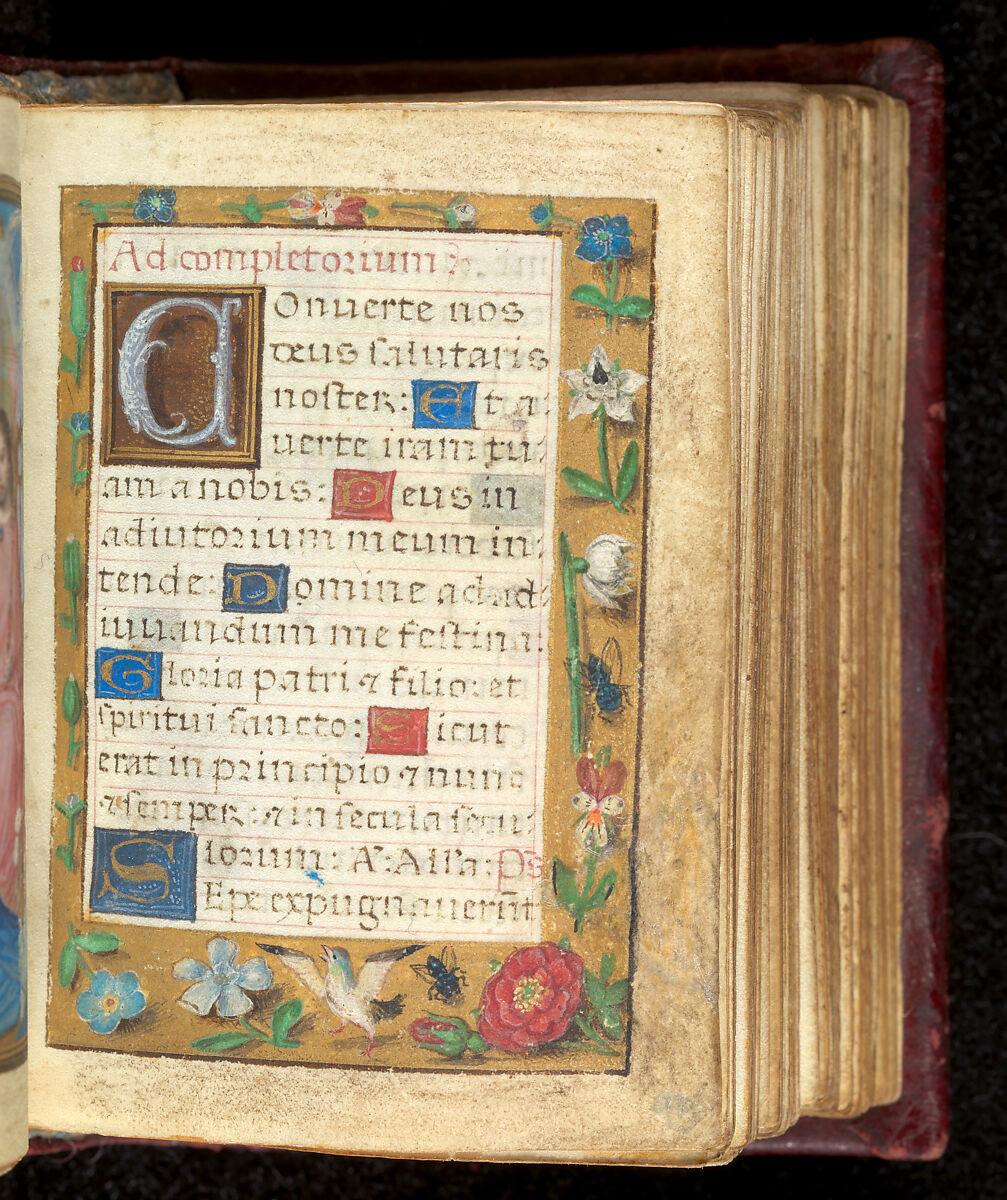 Ad completorium
Conuerte nos
deus salutaris
noster: Et a:
uerte iram tu:
am a nobis: Deus in
adiutorium meum in:
tende: Domine ad ad:
iuuandum me festina:
Gloria patri & filio: et
spiritui sancto: Sicut
erat in principio & nunc
& semper: & in secula secu:
lorum: A: Alla: Ps
Sepe expugnauerūt